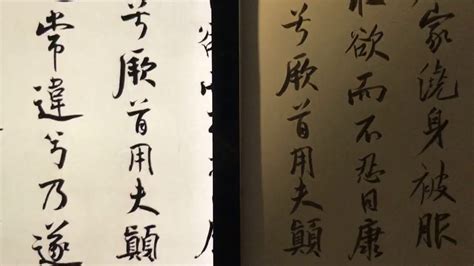 家澆身被服
欲而不忍日康
兮厥首用夫顛
兮厥首用夫顛
常違兮乃遂